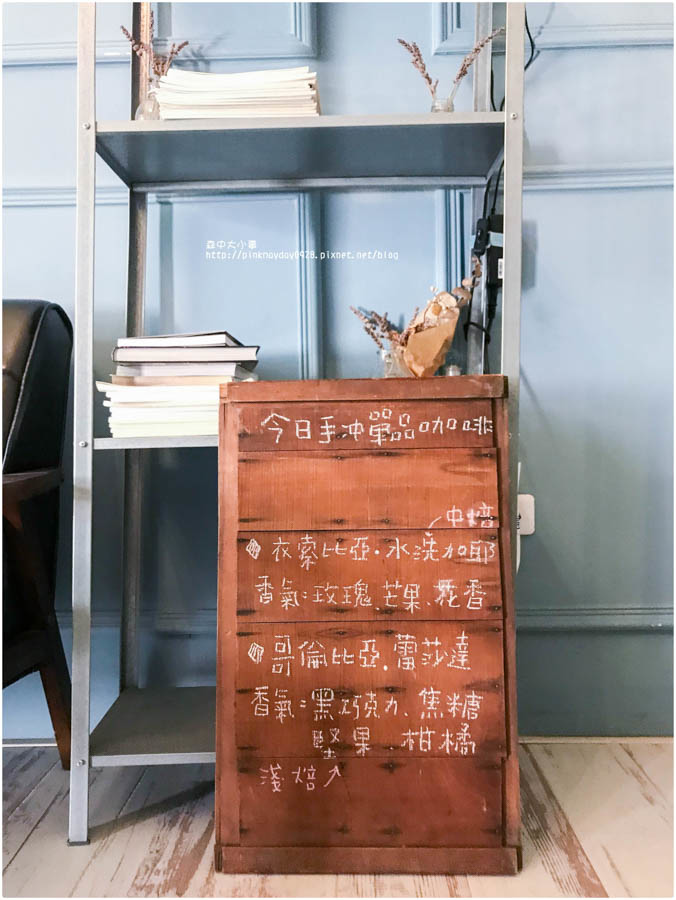 森中大小事
http://pinknoyday0428.pixnet.net/blog
今日手冲單品咖啡
中焙
衣索比亞·水洗加耶
香氣:玫瑰、芒果、花香
哥倫比亞.蕾莎達
香氣:黑巧克力、焦糖
堅果.柑橘
淺焙